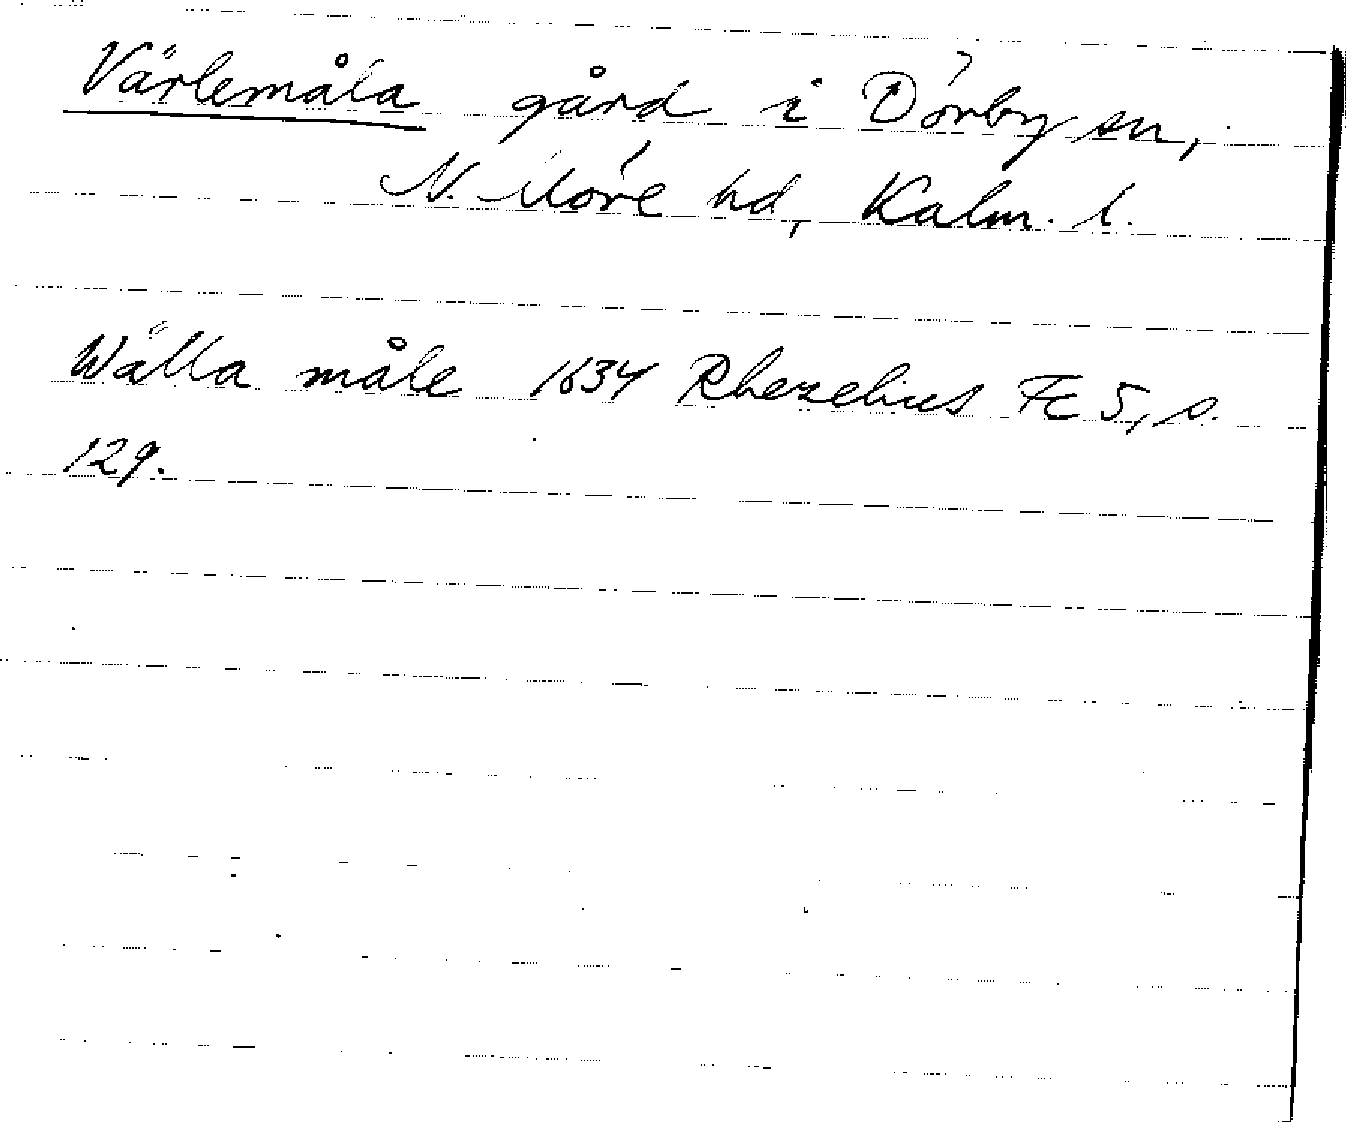 Värlemåla gård i Dörby sn,
N. Möre hd, Kalm. l.
Wälla måle 1634 Rhezelius Fc 5, s.
129.